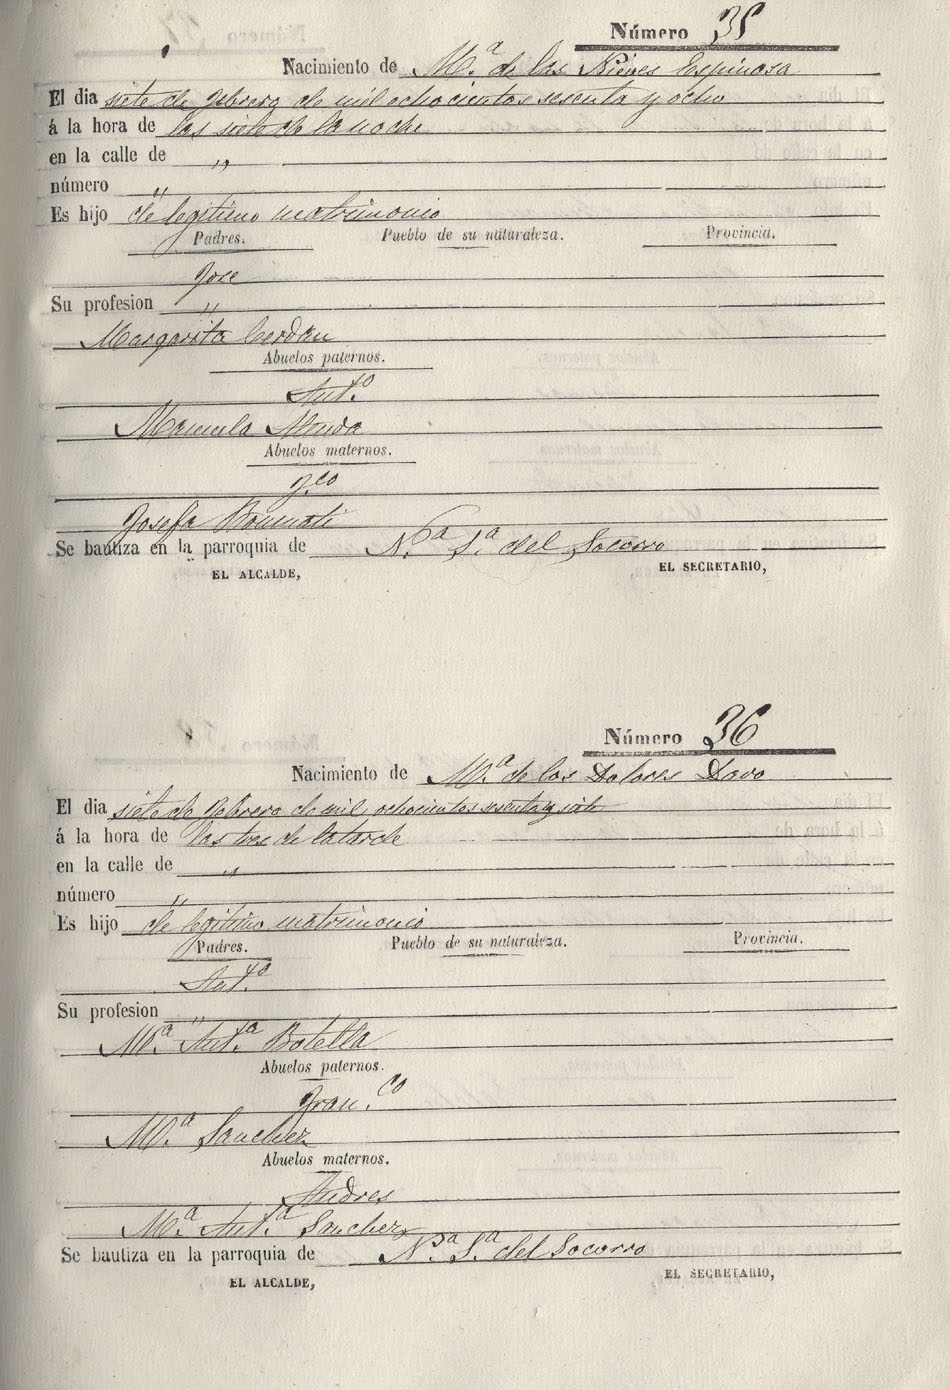 Número 35
Nacimiento de Mª. de las Nieves Espinosa
El dia siete de febrero de mil ochocientos sesenta y ocho
á la hora de las siete de la noche
en la calle de "
número "
Es hijo de legitimo matrimonio
Padres. Pueblo de su naturaleza. Provincia.
Jose
Su profesion "
Margarita Cerdan
Abuelos paternos.
Antº.
Manuela
Abuelos maternos.
Fco
Josefa
Se bautiza en la parroquia de Nª. Sª. del Socorro
EL ALCALDE, EL SECRETARIO,
Número 36
Nacimiento de Mª. de los Dolores Davo
El dia siete de febrero de mil ochocientos sesenta y siete
á la hora de las tres de la tarde
en la calle de "
número "
Es hijo de legitimo matrimonio
Padres. Pueblo de su naturaleza. Provincia.
Antº.
Su profesion "
Mª. Antª. Botella
Abuelos paternos.
Fran.co
Mª. Sanchez
Abuelos maternos.
Andres
Mª. Antª. Sanchez
Se bautiza en la parroquia de Nª. Sª. del Socorro
EL ALCALDE, EL SECRETARIO,